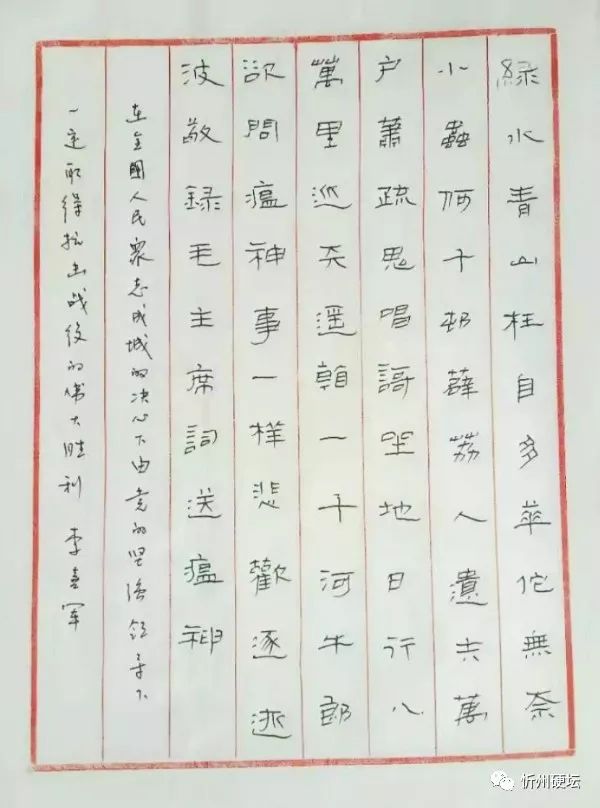 綠水青山枉自多華佗無奈
小蟲何千邨薜荔人遺矢萬
戶蕭疏鬼唱謌坐地日行八
萬里巡天遥看一千河牛郎
欲問瘟神事一样悲歡逐逝
波敬録毛主席詞送瘟神
在全國人民眾志成城的决心下由党的坚强领导下
一定取得抗击战役的伟大胜利 李喜军
忻州硬坛